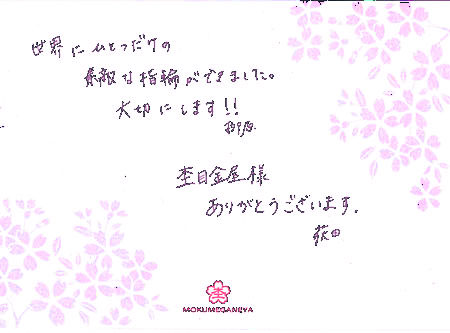 世界にひとつだけの
素敵な指輪ができました。
大切にします!!
杢目金屋様
ありがとうございます。
荻田
MOKUMEGANEYA